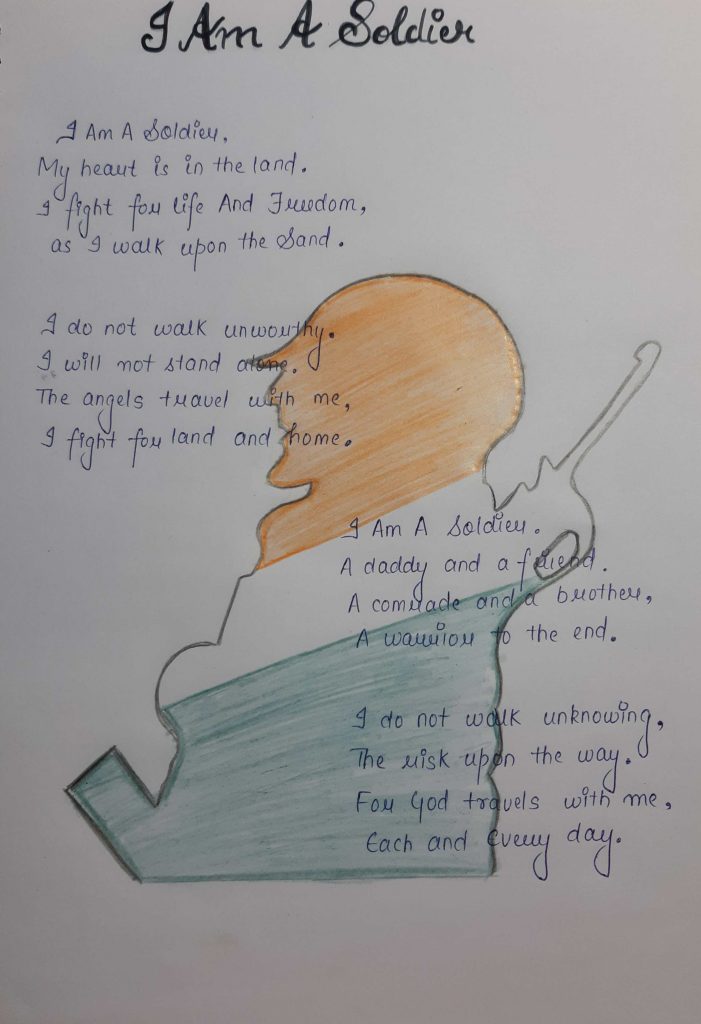 I Am A Soldier
I Am A Soldier,
My heart is in the land.
I fight for life And Freedom,
as I walk upon the Sand.
I do not walk unworthy.
I will not stand alone.
The angels travel with me,
I fight for land and home.
I Am A Soldier.
A daddy and a friend.
A comrade and a brother,
A warrior to the end.
I do not walk unknowing,
The risk upon the way.
For God travels with me,
Each and Every day.